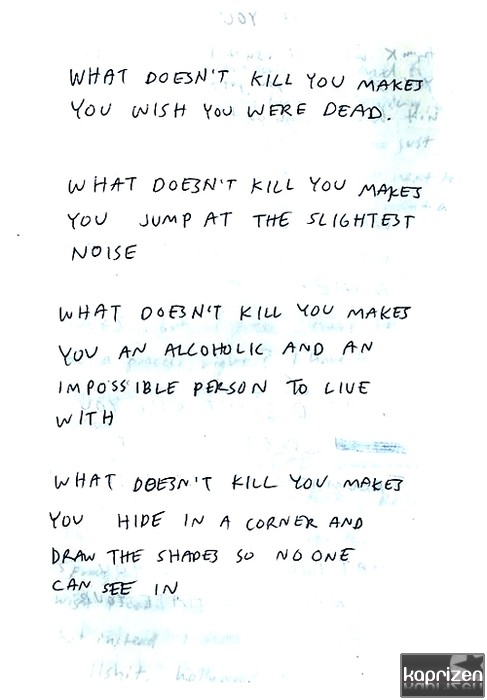 WHAT DOESN'T KILL YOU MAKES
YOU WISH YOU WERE DEAD.
WHAT DOESN'T KILL YOU MAKES
YOU JUMP AT THE SLIGHTEST
NOISE
WHAT DOESN'T KILL YOU MAKES
YOU AN ALCOHOLIC AND AN
IMPOSSIBLE PERSON TO LIVE
WITH
WHAT DOESN'T KILL YOU MAKES
YOU HIDE IN A CORNER AND
DRAW THE SHADES SO NO ONE
CAN SEE IN
kaprizen